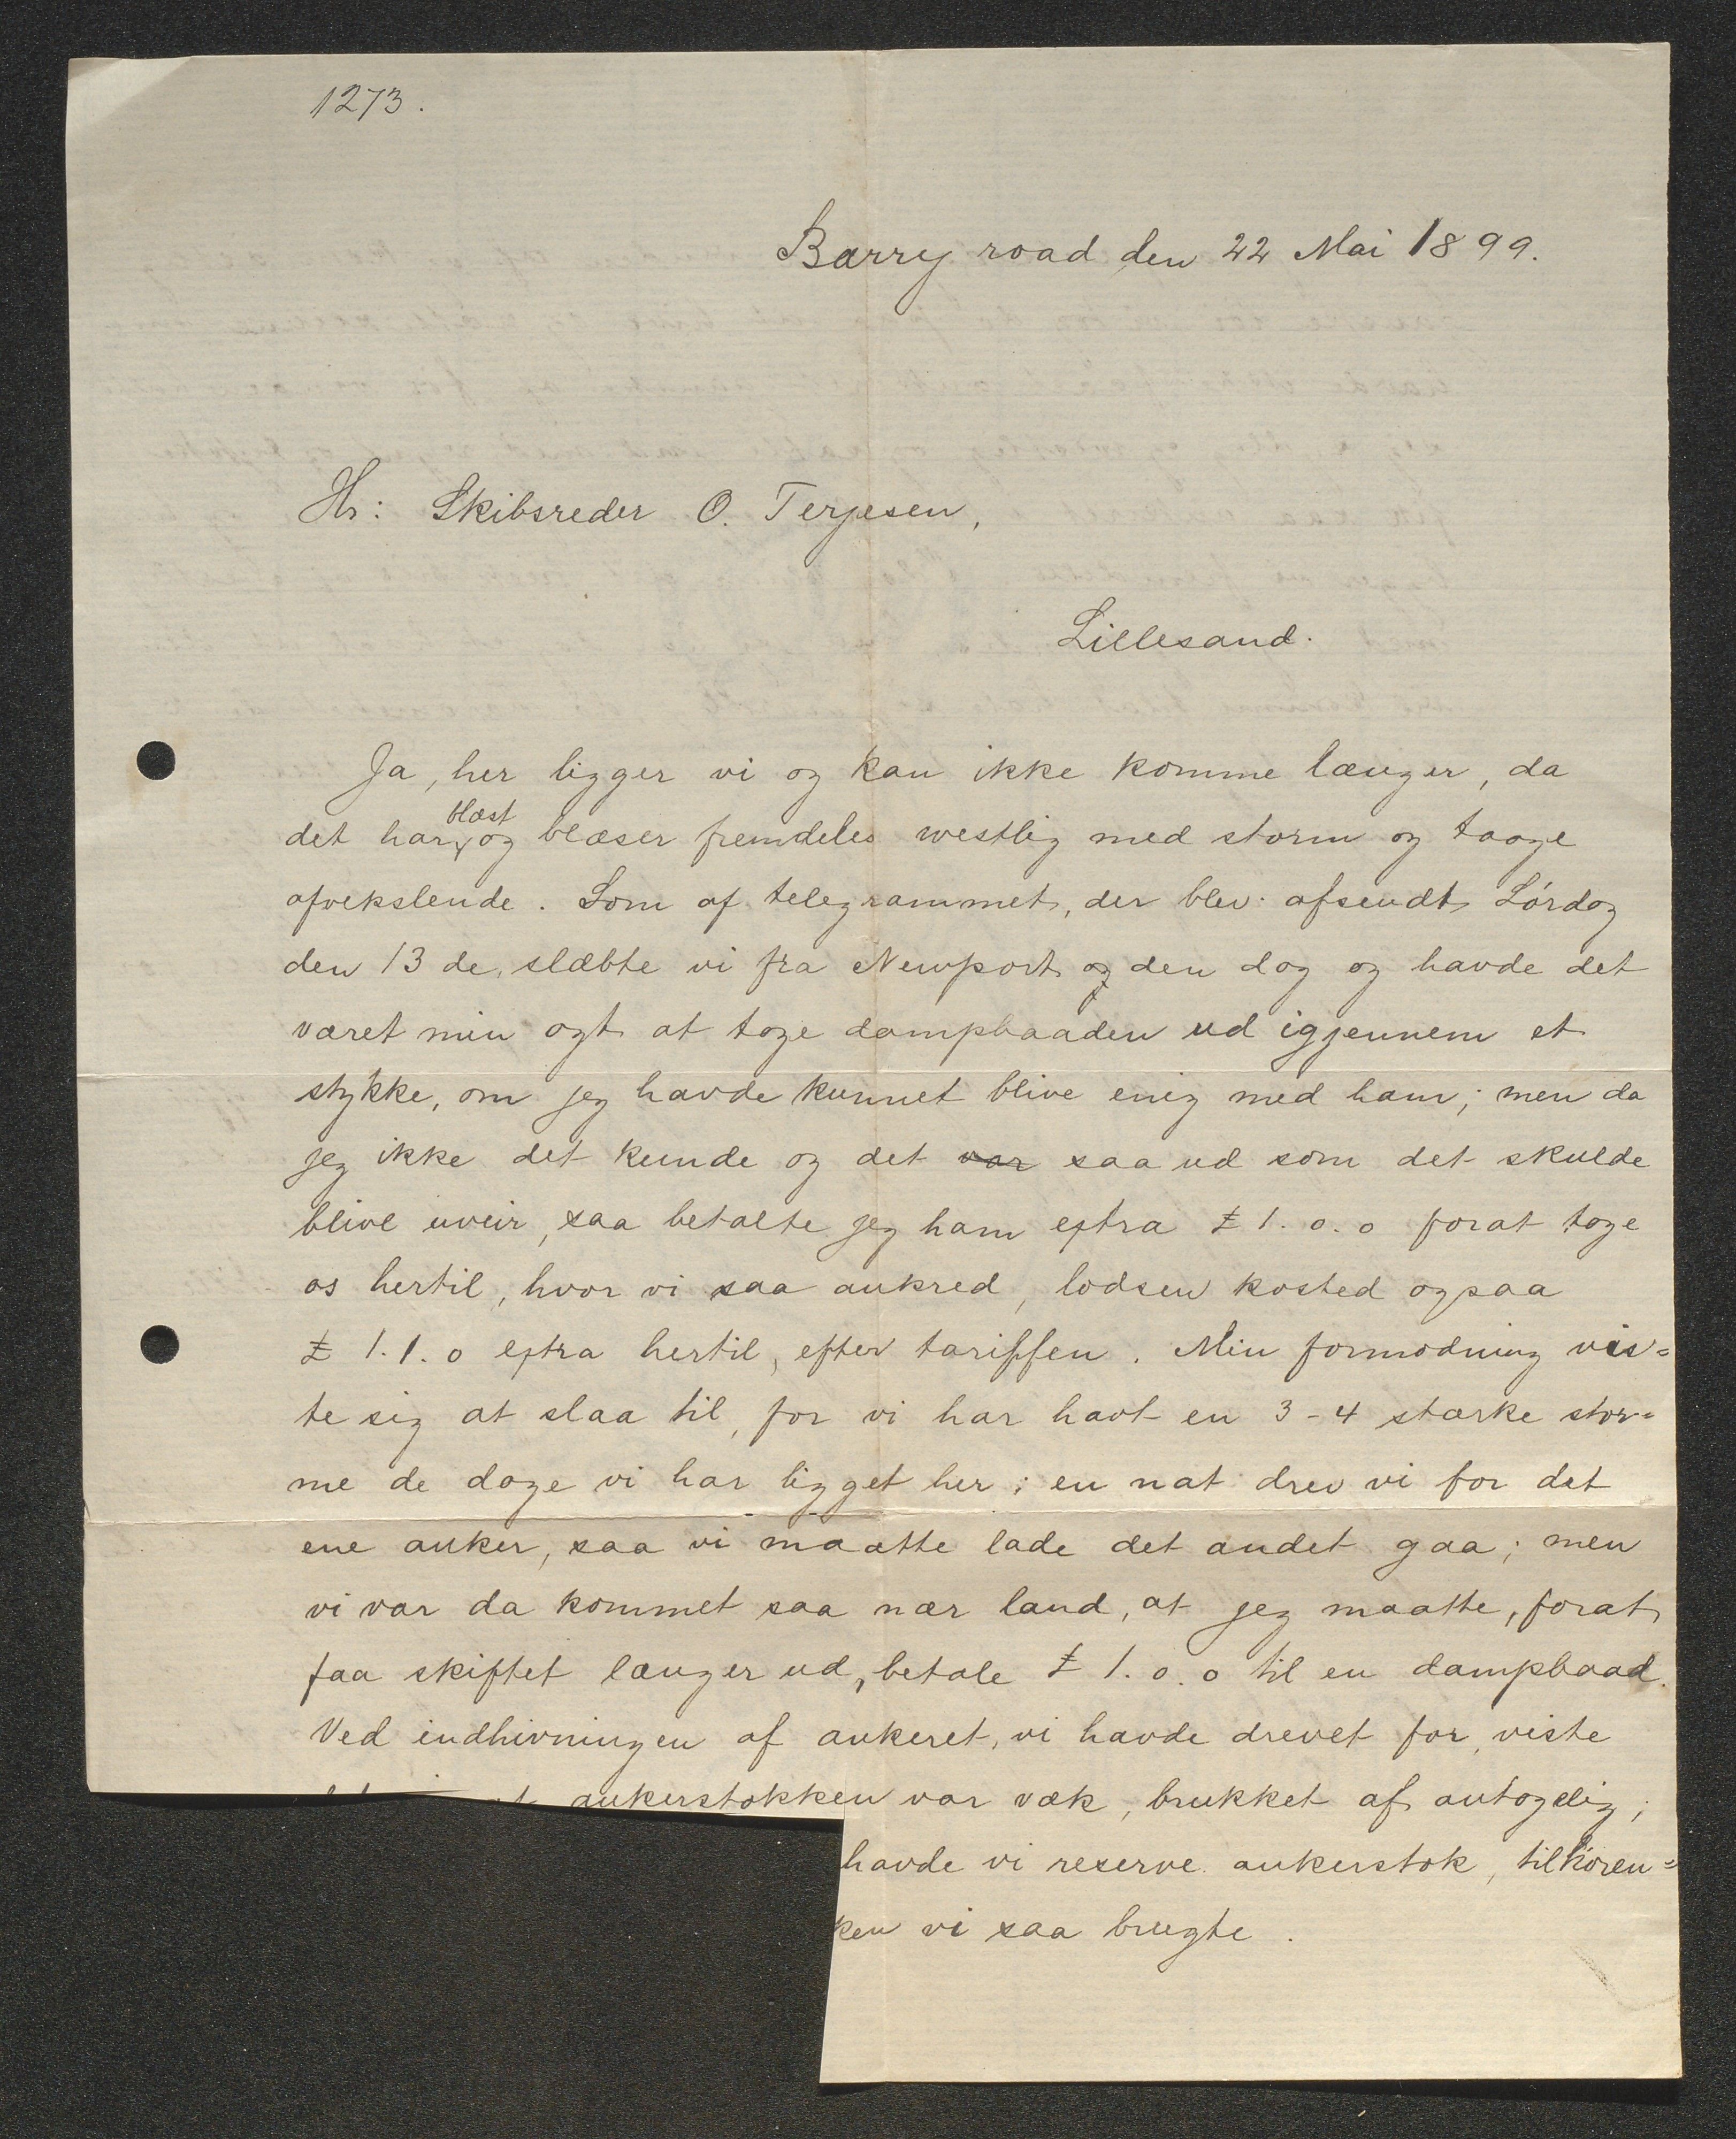 1273.
Barry road den 22 Mai 1899.
Hr: Skibsreder O. Terjesen,
Lillesand.
Ja, her ligger vi og kan ikke komme længer, da
det har blæst og blæser fremdeles westlig med storm og taage
afvekslende. Som af telegrammet, der blev afsendt Lördag
den 13 de, slæbte vi fra Newport og den dag og havde det
været min agt at tage dampbaaden ud igjennem et
stykke, om jeg havde kunnet blive enig med ham; men da
jeg ikke det kunde og det var saa ud som det skulde
blive uveir, saa betalte jeg ham extra £ 1. o. o forat tage
os hertil, hvor vi saa ankred, lodsen kosted ogsaa
£ 1. 1. o extra hertil, efter tariffen. Min formodning vis=
te sig at slaa til, for vi har havt en 3-4 stærke stor=
me de dage vi har ligget her; en nat drev vi for det
ene anker, saa vi maatte lade det andet gaa; men
vi var da kommet saa nær land, at jeg maatte, forat
faa skiftet længer ud, betale £ 1. o. o til en dampbaad.
Ved indhivningen af ankeret, vi havde drevet for, viste
ankerstokken var væk, brukket af antagelig;
havde vi reserve ankerstok, tilhören=
ken vi saa brugte.